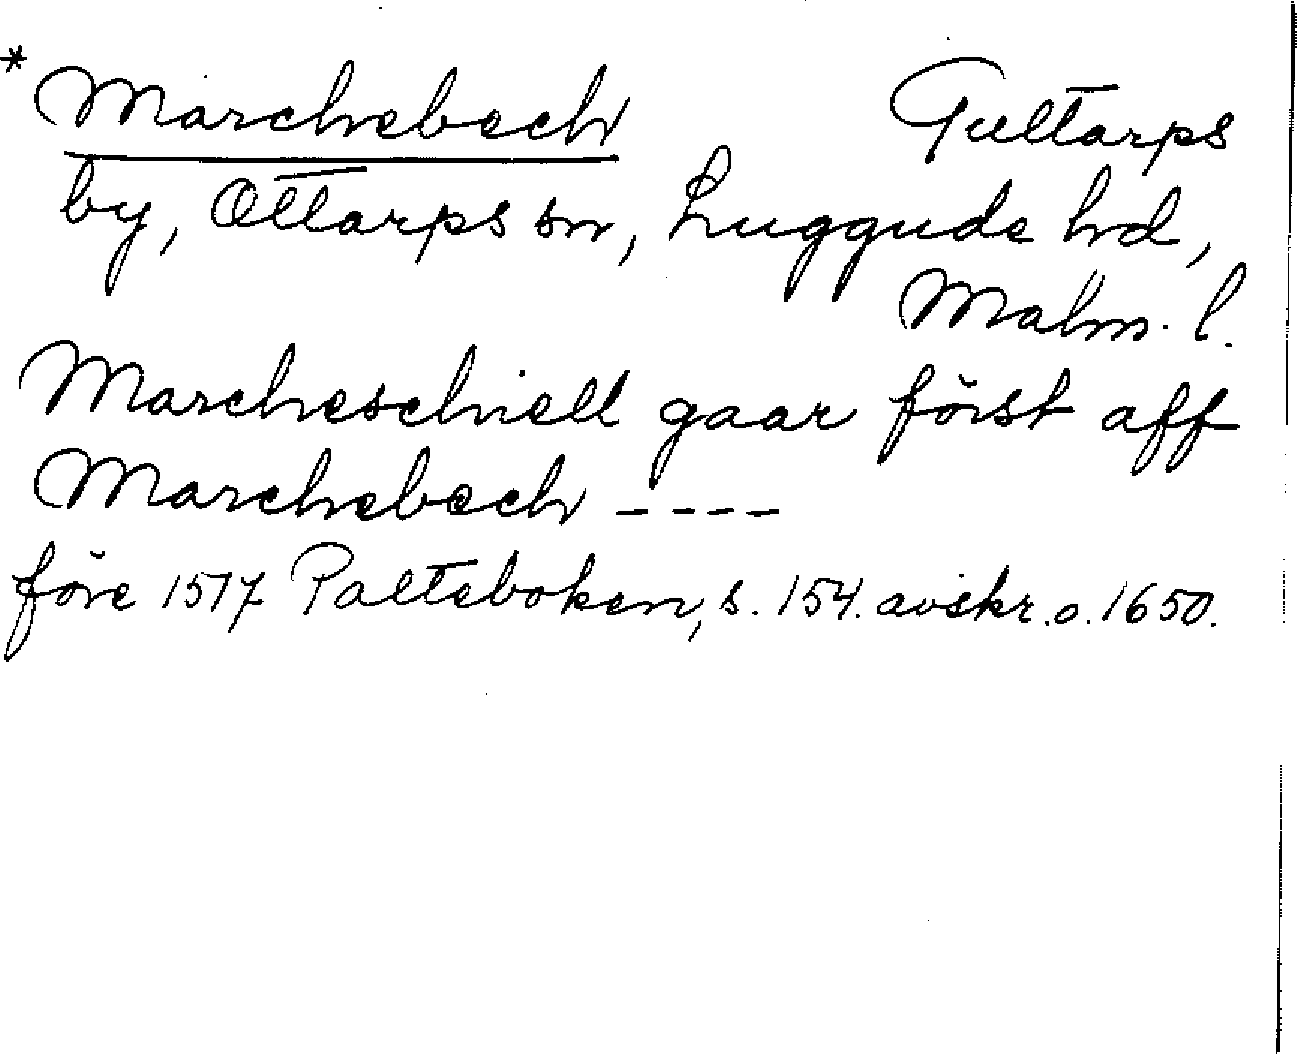 * Marchebech Guttarps
by, Ottarps sn, Luggude hd,
Malm. l.
Marcheschiell gaar först aff
Marchebech ----
före 1517 Palteboken, s. 154. avskr. o. 1650.